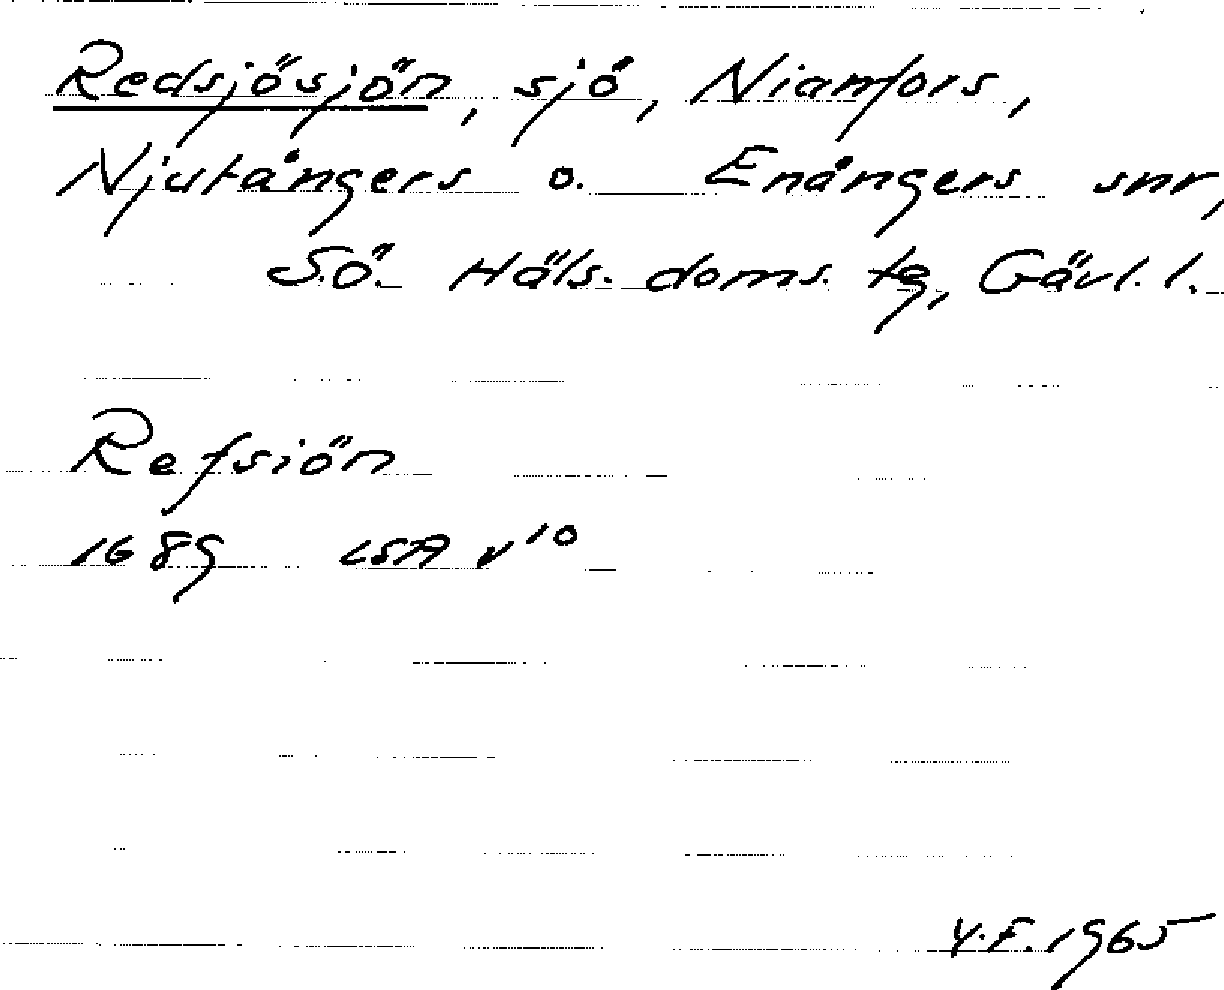 Redsjösjön, sjö, Nianfors,
Njutångers o. Enångers snr,
Sö. Häls. doms. tg, Gävl. l.
Refsiön
1689 LSA v 10
Y.F. 1965